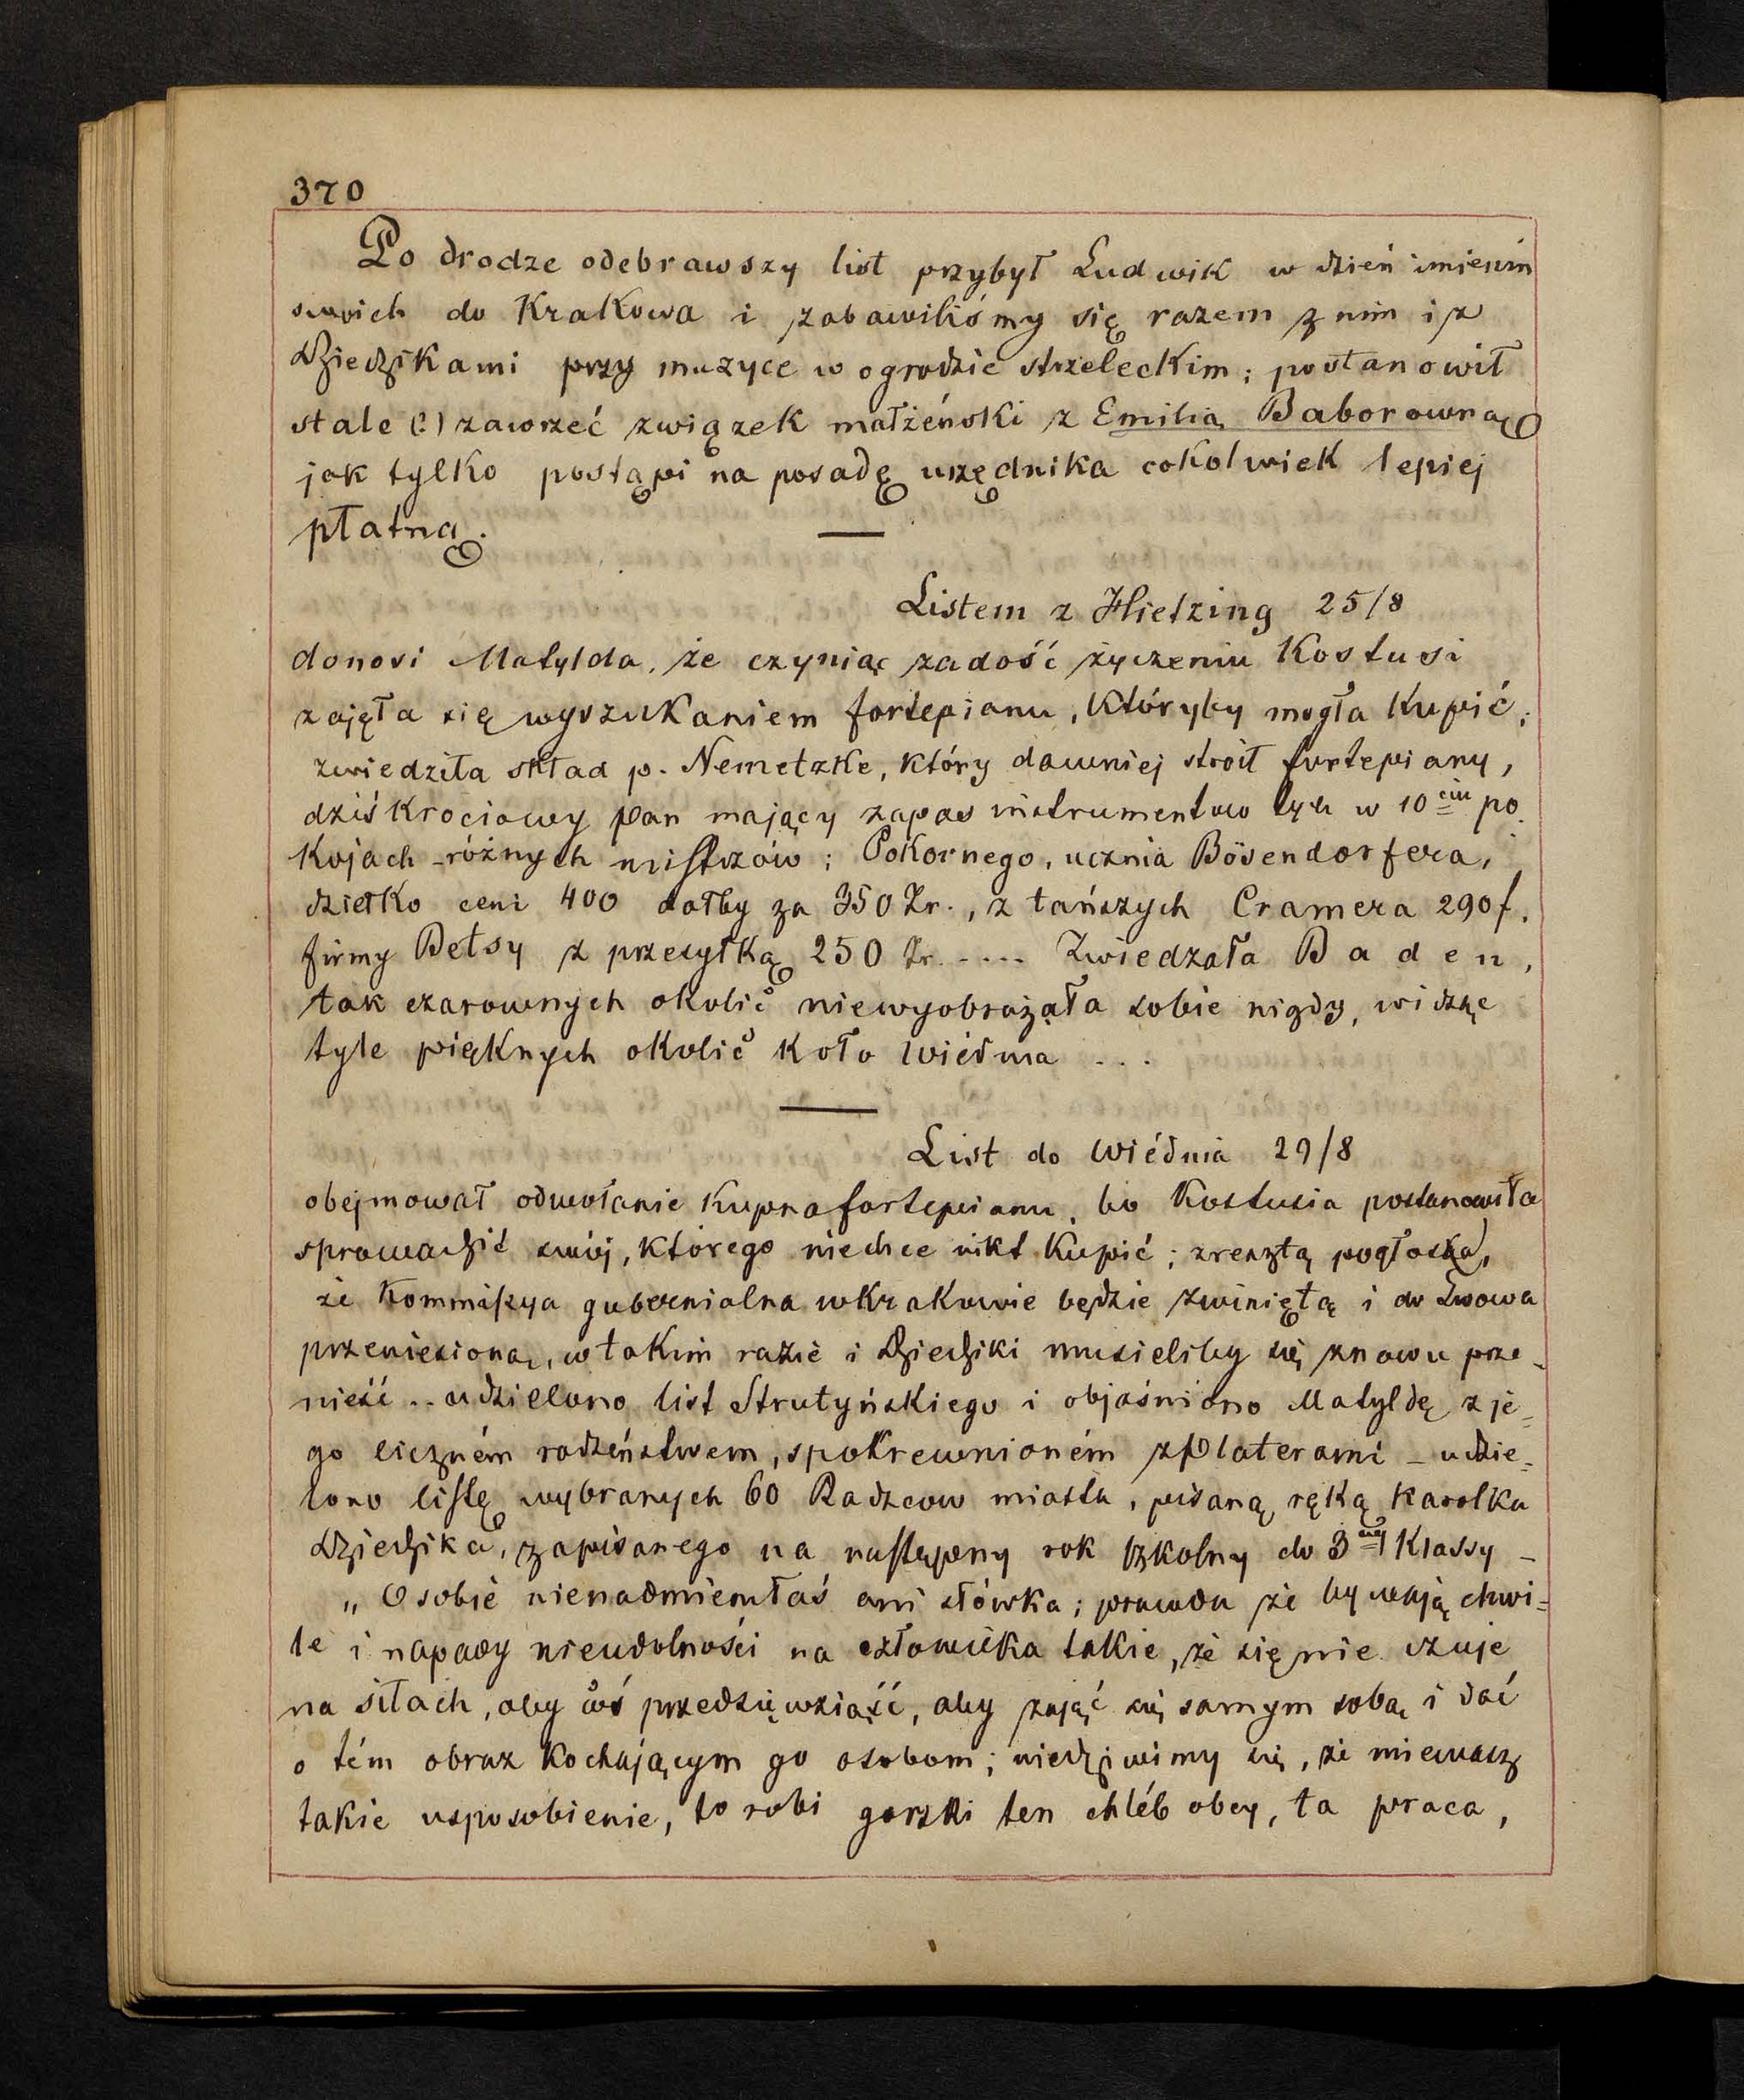 370
Po drodze odebrawszy list przybył Ludwik w dzień imienin
swoich do Krakowa i zabawiliśmy się razem z nim i z
Dziedzikami przy muzyce w ogrodzie strzeleckim; postanowił
stale (?) zawrzeć związek małżeński z Emilią Baborowną
jak tylko postąpi na posadę urzędnika cokolwiek lepiej
płatną. —
Listem z Hietzing 25/8
donosi Matylda, że czyniąc zadość życzeniu Kostusi
zajęła się wyszukaniem fortepianu, któryby mogła kupić;
zwiedziła skład p. Nemetzke, który dawniej stroił fortepiany,
dziś krociowy pan mający zapas instrumentów tych w 10ciu po
kojach - różnych mistrzów; Pokornego, ucznia Bösendorfera,
dziełko ceni 400 dałby za 350 Zr., z tańszych Cramera 290 f.
firmy Betsy z przesyłką 250 Zr. .... Zwiedzała Baden,
tak czarownych okolic niewyobrażała sobie nigdy, widząc
tyle pięknych okolic koło Wiédnia ...
List do Wiédnia 29/8
obejmował odwołanie kupna fortepianu, bo Kostusia postanowiła
sprowadzić swój, którego niechce nikt kupić; zresztą pogłoska,
że Kommissya gubernialna w Krakowie będzie zwiniętą i do Lwowa
przeniesioną, w takim razie i Dziedziki musieliby się znowu prze-
nieść .. udzielono list Strutyńskiego i objaśniono Matyldę z je=
go liczném rodzeństwem, spokrewnioném z Platerami - udzie=
lono listę wybranych 60 Radzców miasta, pisaną ręką Karolka
Dziedzika, zapisanego na następny rok szkolny do 3ciej Klassy -
„O sobie nienadmieniłaś ani słówka; prawda że bywają chwi=
le i napady nieudolności na człowieka takie, że się nie czuje
na siłach, aby cóś przedsięwziąść, aby zająć się samym sobą i dać
o tém obraz kochającym go osobom; niedziwimy się, że miewasz
takie usposobienie, to robi gorzki ten chléb obcy, ta praca,